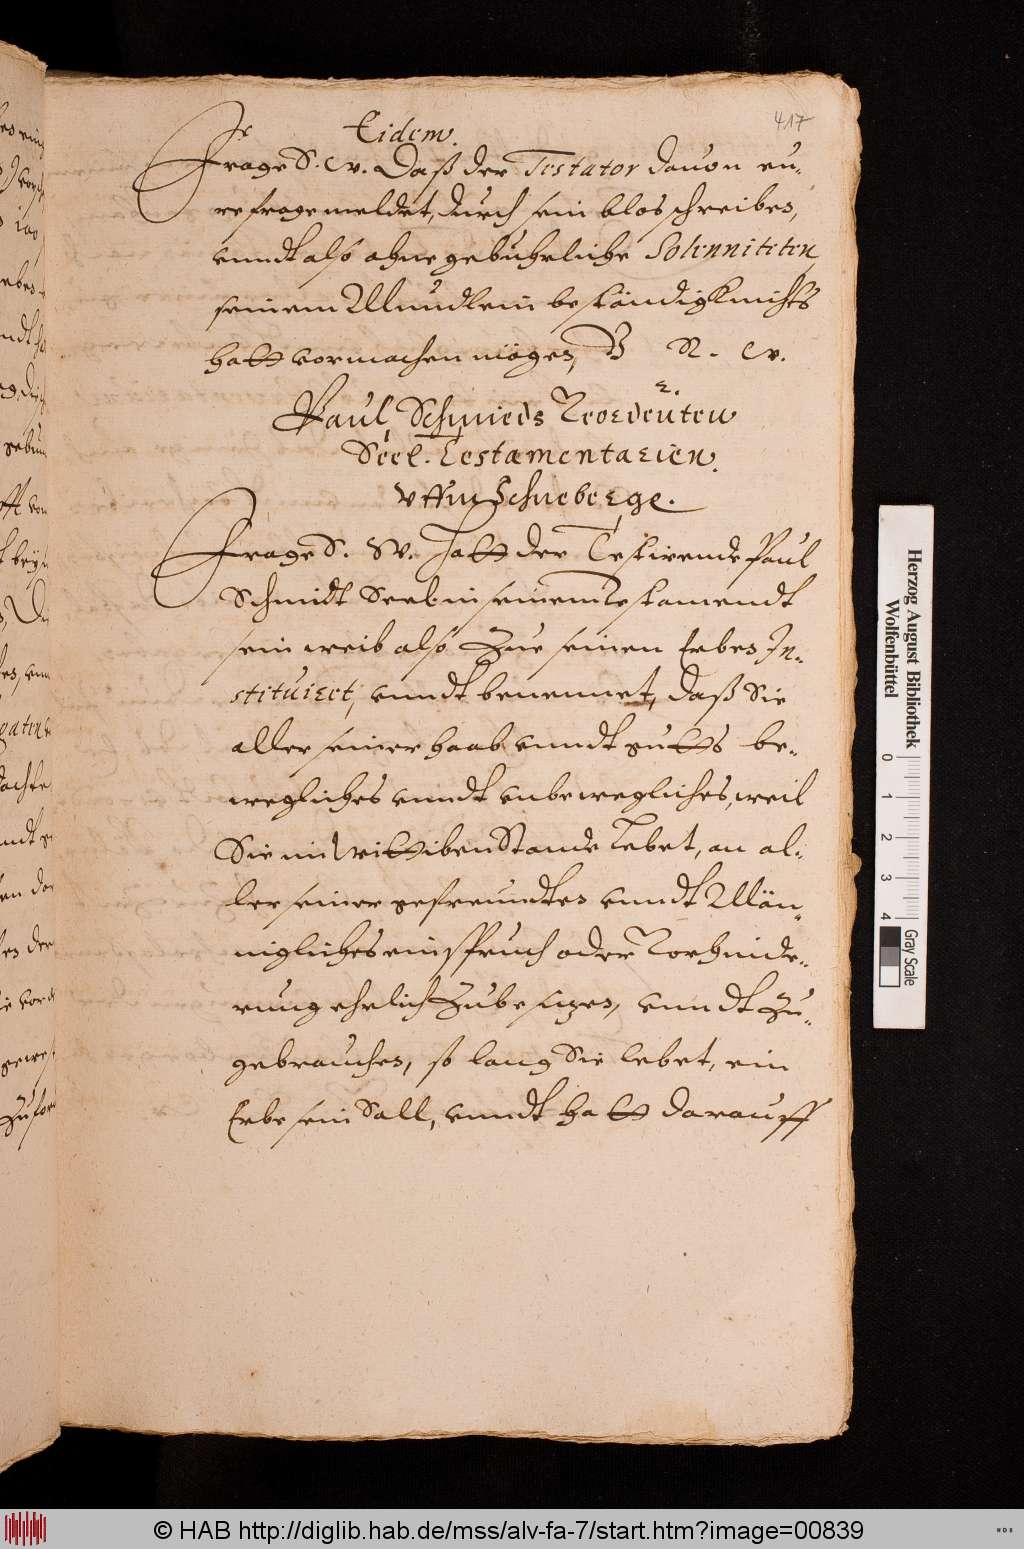 417
Eidem.
Frage S. W. Daß der Testator dauon eu-
re frage meldet, durch sein blos schreiben,
vnndt also ohne gebuhrliche Solenniteten
seinem Mundlein bestándigk nichts
hatt vormachen mögen, V R. W.
Paul Schmieds
Seel. Testamentarien.
vffm Schneberge.
Frage S. W. Hatt der Testirende Paul
Schmidt Seel. in seinem Testamendt
sein weib also Zue seinen Erben In-
stituiert, vnndt benennet, daß Sie
aller seiner haab vnndt gutts be-
wegliches vnndt vnbewegliches, weil
Sie im Wittiben Stande Lebet, an al-
ler seiner gefreundten vnndt Män-
nigliches einspruch oder Vorhinde-
rung ehrlich Zubesizen, vnndt Zu-
gebrauchen, so lang Sie lebet, ein
Erbe sein Sall, vnndt hatt darauff
Herzog August Bibliothek
Wolfenbüttel
0 1 2 3 4 Gray Scale
© HAB http://diglib.hab.de/mss/alv-fa-7/start.htm?image=00839